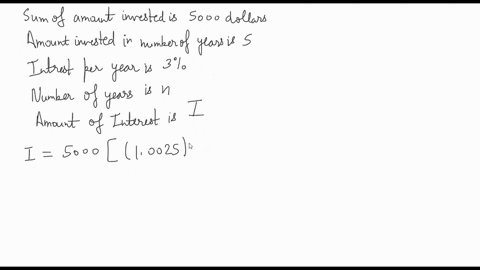 Sum of amount invested is 5000 dollars
Amount invested in number of years is 5
Intrest per year is 3%
Number of years is n
Amount of Interest is I
I = 5000 [ (1.0025)